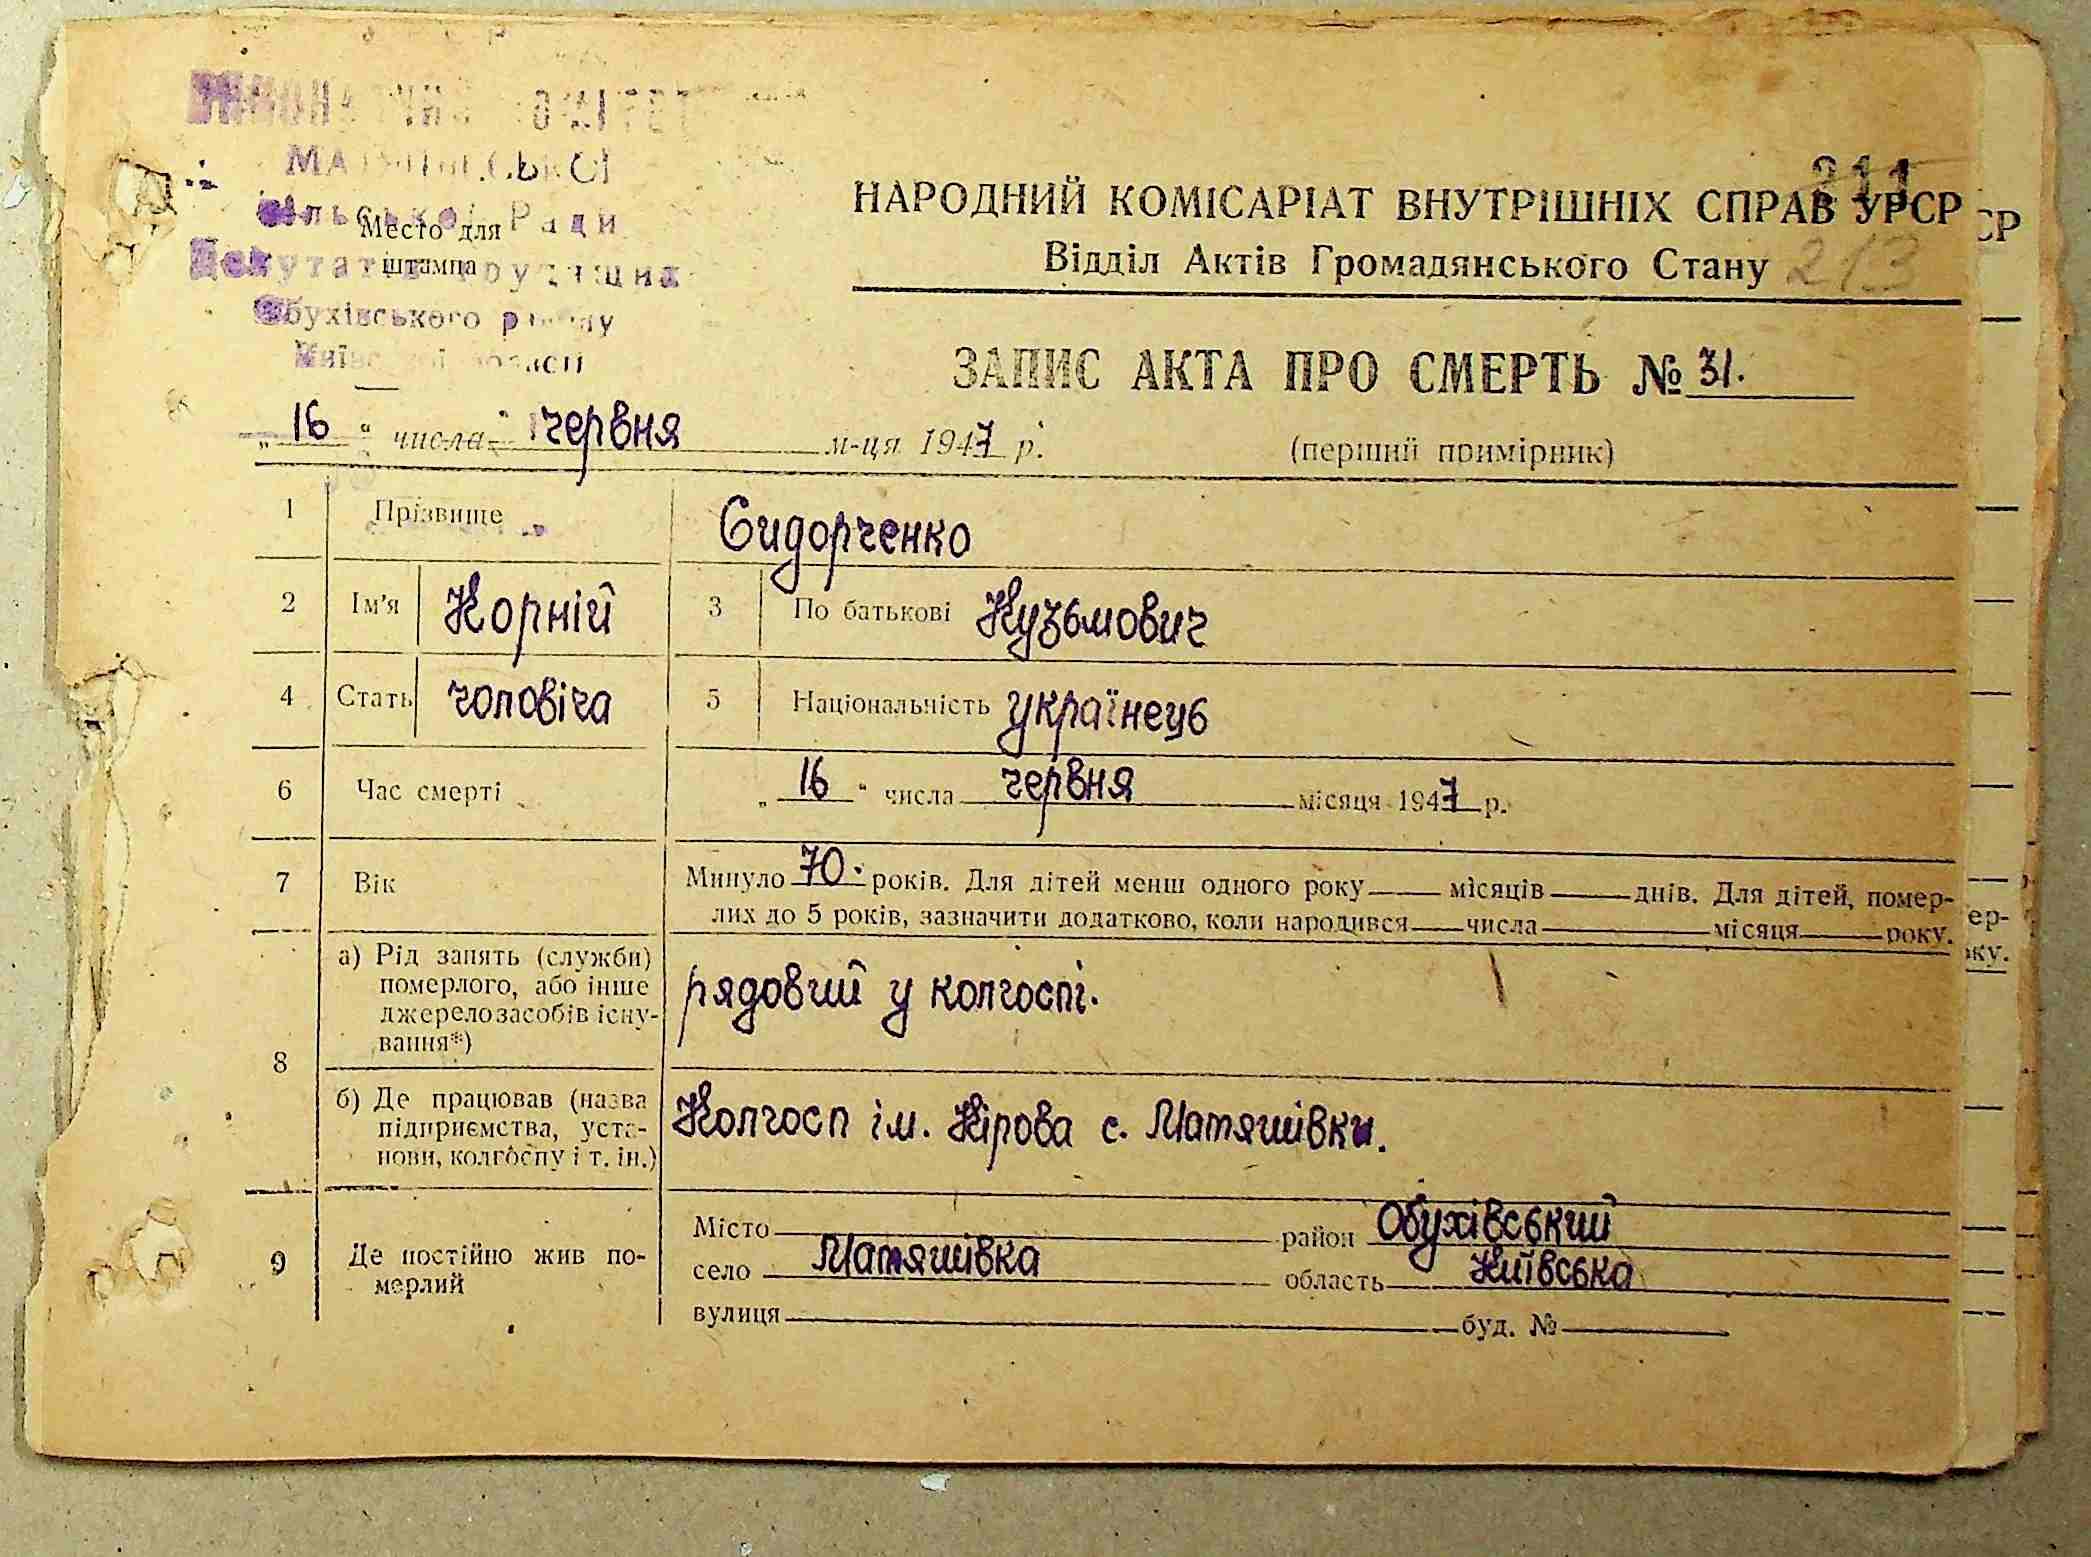 Сільської Ради
Место для
штампа
Депутатів Трудящих
Обухівського району
Київської області
211
НАРОДНИЙ КОМІСАРІАТ ВНУТРІШНІХ СПРАВ УРСР
СР
Відділ Актів Громадянського Стану 213
ЗАПИС АКТА ПРО СМЕРТЬ № 31.
„16“ числа червня м-ця 1947 р. (перший примірник)
1 Прізвище Сидорченко
2 Ім'я Корній 3 По батькові Кузьмович
4 Стать чоловіча 5 Національність українець
6 Час смерті „16“ числа червня місяця 1947 р.
7 Вік Минуло 70. років. Для дітей менш одного року місяців днів. Для дітей, помер-
лих до 5 років, зазначити додатково, коли народився числа місяця року.
ер-
ку.
8 а) Рід занять (служби)
померлого, або інше
джерело засобів існу-
вання*)
рядовий у колгоспі.
б) Де працював (назва
підприємства, уста-
нови, колгоспу і т. ін.)
Колгосп ім. Кірова с. Матяшівки.
9 Де постійно жив по-
мерлий
Місто район Обухівський
село Матяшівка область Київська
вулиця буд. №